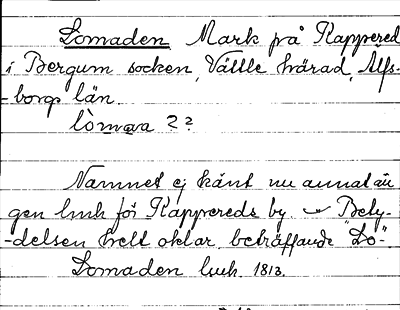 Lomaden Mark på Kappered
i Bergum socken, Vättle härad, Älfs-
-borgs län.
lòmava 2 ?
Namnet ej känt nu annat än
gen lmh för Kappereds by. Bety-
-delsen helt oklar beträffande "Lo-".
Lomaden lmh. 1813.